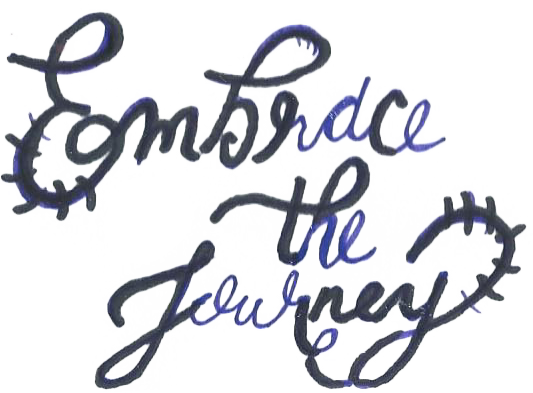 Embrace
the
Journey